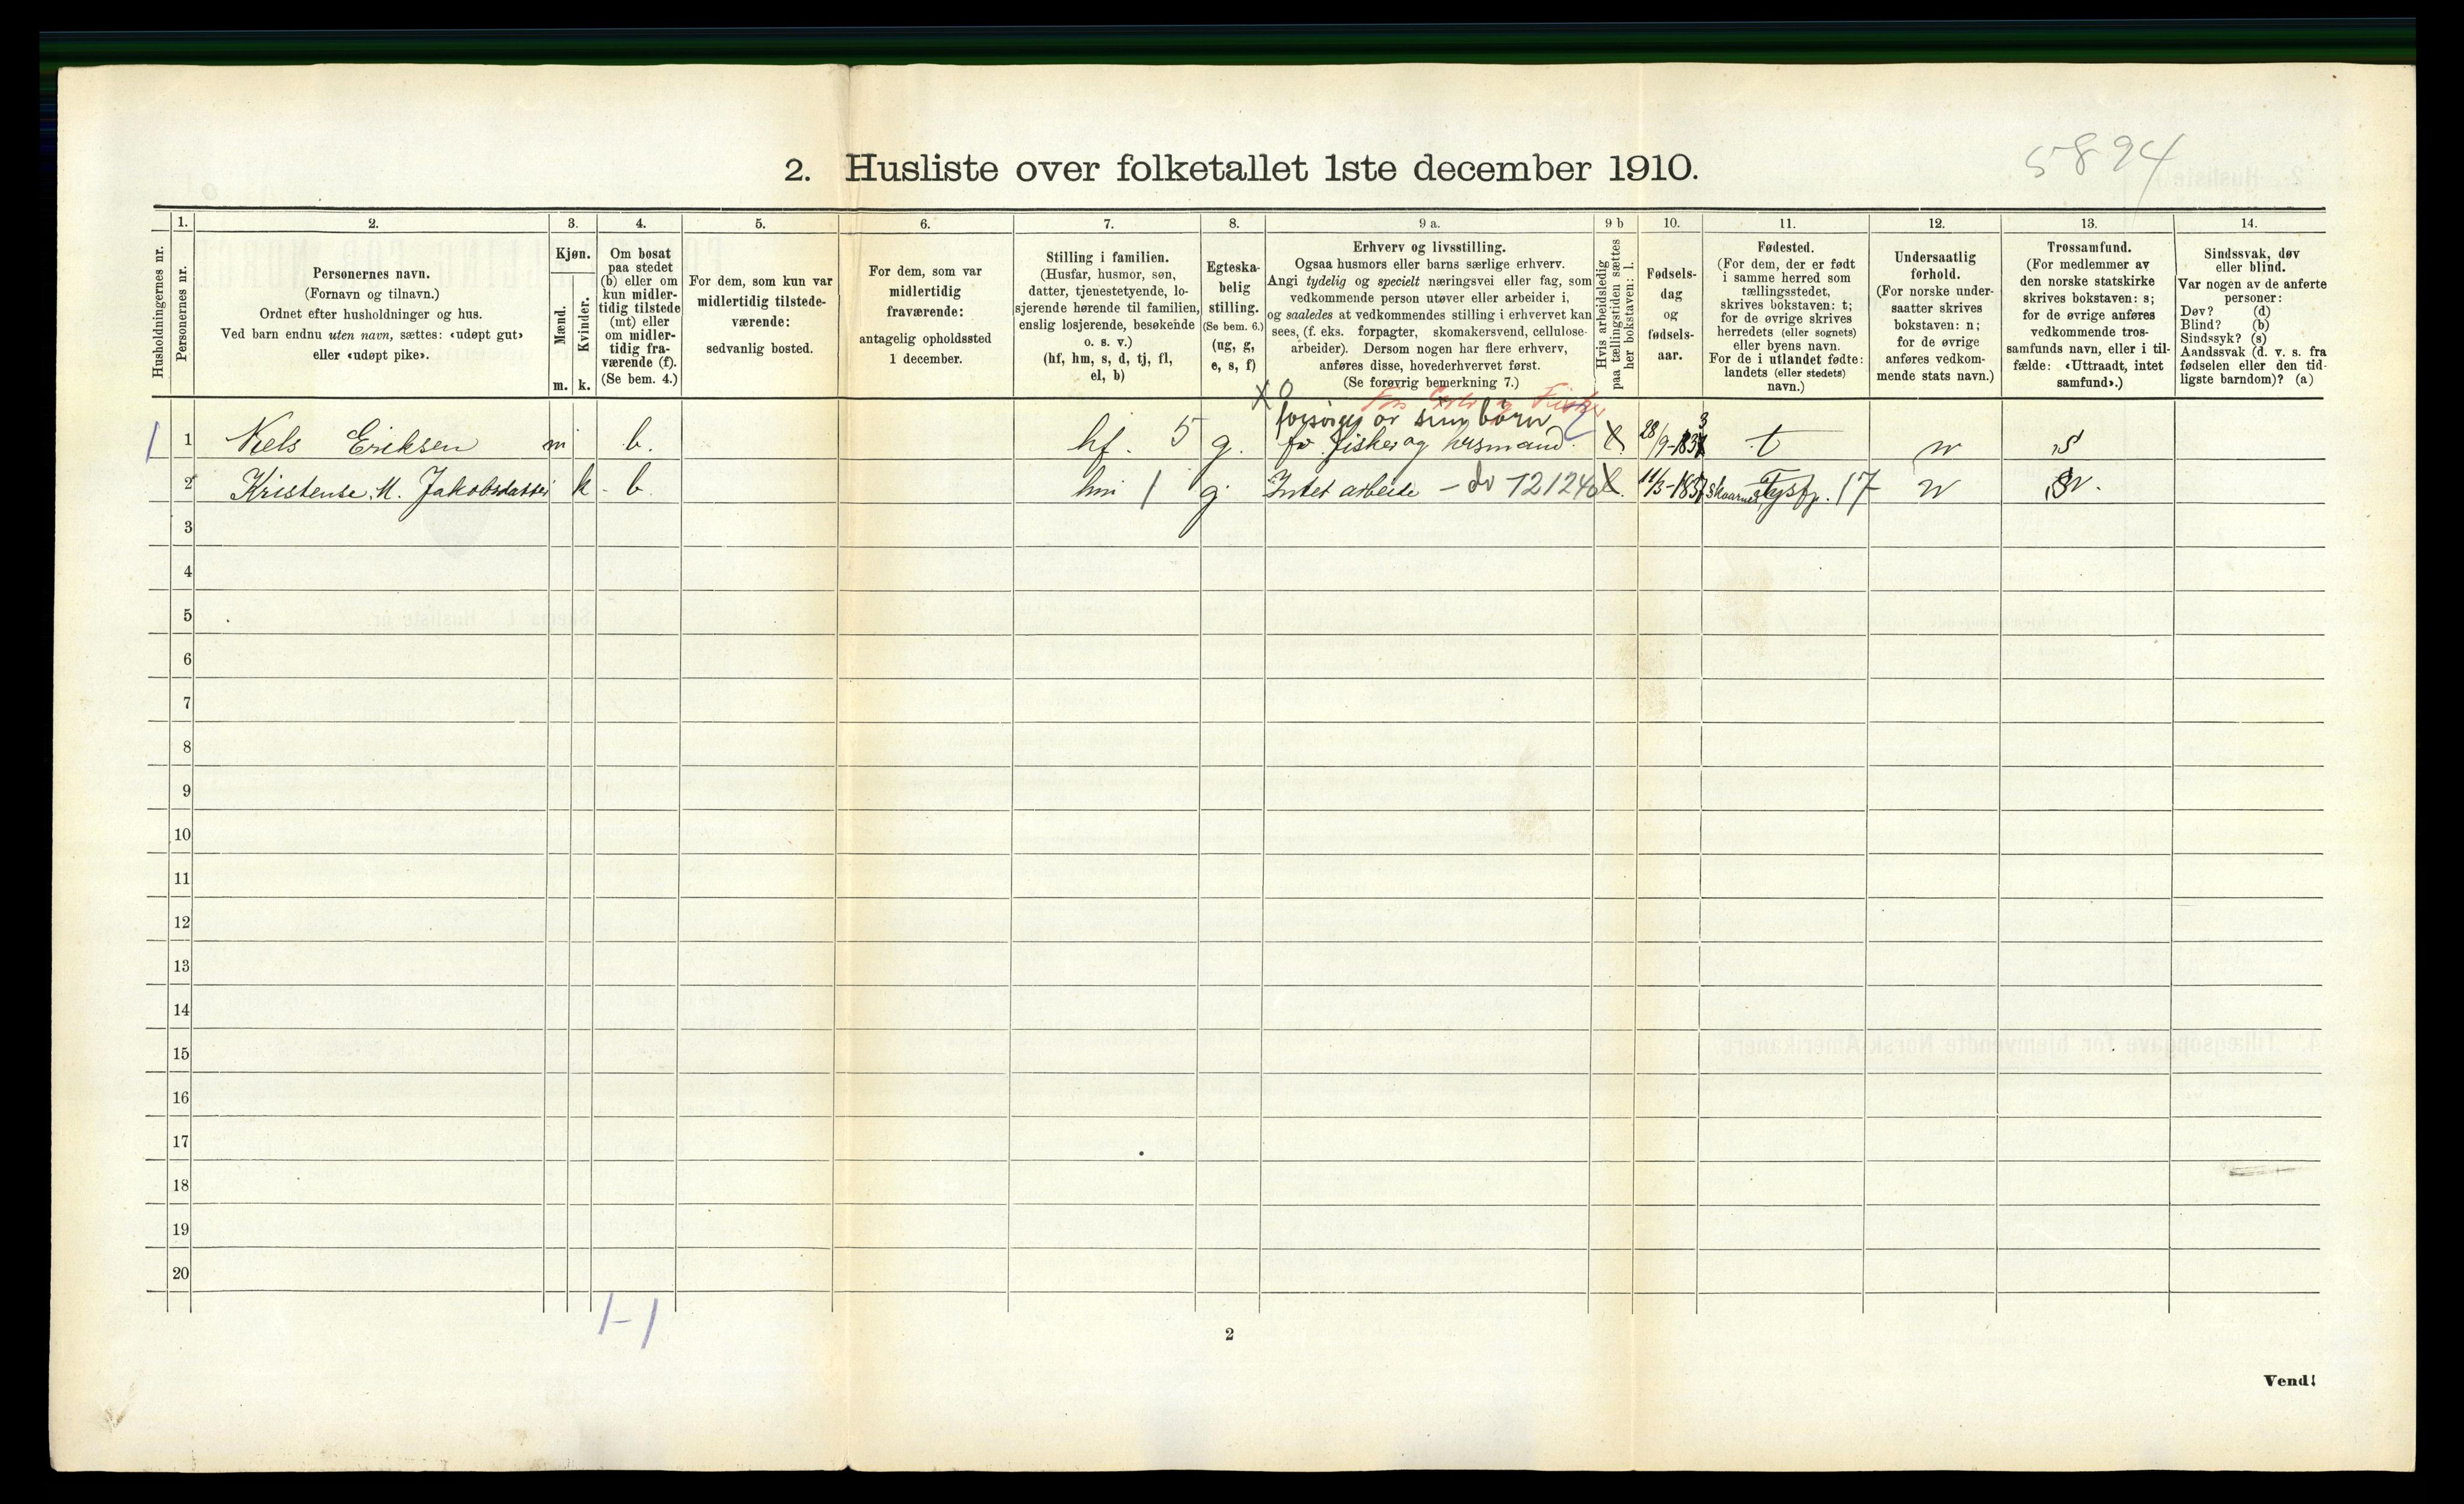 5894
2. Husliste over folketallet 1ste december 1910.
Husholdningernes nr.
1.
Personernes nr.
2.
Personernes navn.
(Fornavn og tilnavn.)
Ordnet efter husholdninger og hus.
Ved barn endnu uten navn, sættes: «udøpt gut»
eller «udøpt pike».
3.
Kjøn.
Mænd.
Kvinder.
m. k.
4.
Om bosat
paa stedet
(b) eller om
kun midler-
tidig tilstede
(mt) eller
om midler-
tidig fra-
værende (f).
(Se bem. 4.)
5.
For dem, som kun var
midlertidig tilstede-
værende:
sedvanlig bosted.
6.
For dem, som var
midlertidig
fraværende:
antagelig opholdssted
1 december.
7.
Stilling i familien.
(Husfar, husmor, søn,
datter, tjenestetyende, lo-
sjerende hørende til familien,
enslig losjerende, besøkende
o. s. v.)
(hf, hm, s, d, tj, fl,
el, b)
8.
Egteska-
belig
stilling.
(Se bem. 6.)
(ug, g,
e, s, f)
9 a.
Erhverv og livsstilling.
Ogsaa husmors eller barns særlige erhverv.
Angi tydelig og specielt næringsvei eller fag, som
vedkommende person utøver eller arbeider i,
og saaledes at vedkommendes stilling i erhvervet kan
sees, (f. eks. forpagter, skomakersvend, cellulose-
arbeider). Dersom nogen har flere erhverv,
anføres disse, hovederhvervet først.
(Se forøvrig bemerkning 7.)
9 b
Hvis arbeidsledig
paa tællingstiden sættes
her bokstaven: l.
10.
Fødsels-
dag
og
fødsels-
aar.
11.
Fødested.
(For dem, der er født
i samme herred som
tællingsstedet,
skrives bokstaven: t;
for de øvrige skrives
herredets (eller sognets)
eller byens navn.
For de i utlandet fødte:
landets (eller stedets)
navn.)
12.
Undersaatlig
forhold.
(For norske under-
saatter skrives
bokstaven: n;
for de øvrige
anføres vedkom-
mende stats navn.)
13.
Trossamfund.
(For medlemmer av
den norske statskirke
skrives bokstaven: s;
for de øvrige anføres
vedkommende tros-
samfunds navn, eller i til-
fælde: «Uttraadt, intet
samfund».)
14.
Sindssvak, døv
eller blind.
Var nogen av de anførte
personer:
Døv? (d)
Blind? (b)
Sindssyk? (s)
Aandssvak (d. v. s. fra
fødselen eller den tid-
ligste barndom)? (a)
X 0
forsørges av sine børn
1 1 Niels Eriksen m b. hf. 5 g. fv. fisker og husmand. l. 28/9-183 t n s
2 Kristense M. Jakobsdatter k b hm 1 g Intet arbeide - do 121240 l. 11/3-183 Skaarnes, Tysfj. 17 n s
3
4
5
6
7
8
9
10
11
12
13
14
15
16
17
18
19
20
1-1
2
Vend!